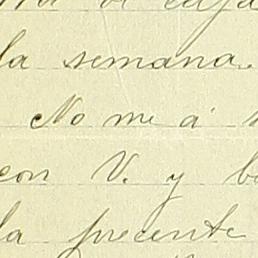 la semana.
No me á
con V. y
la precente